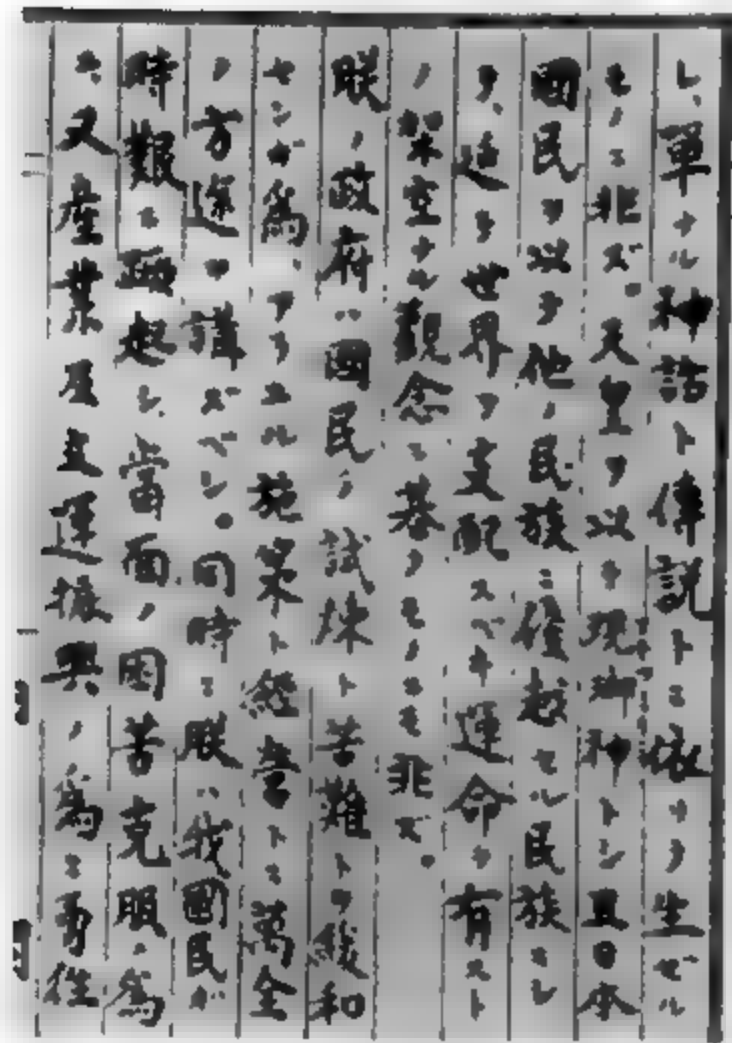 レ、單ナル神話ト傳説トニ依リテ生ゼル
モノニ非ズ。天皇ヲ以テ現御神トシ且日本
國民ヲ以テ他ノ民族ニ優越セル民族ニシ
テ、延テ世界ヲ支配スベキ運命ヲ有スト
ノ架空ナル觀念ニ基クモノニモ非ズ。
朕ノ政府ハ國民ノ試煉ト苦難トヲ緩和
センガ爲、アラユル施策ト經營トニ萬全
ノ方途ヲ講ズベシ。同時ニ朕ハ我國民ガ
時艱ニ蹶起シ、當面ノ困苦克服ノ爲
ニ、又産業及文運振興ノ爲ニ勇往